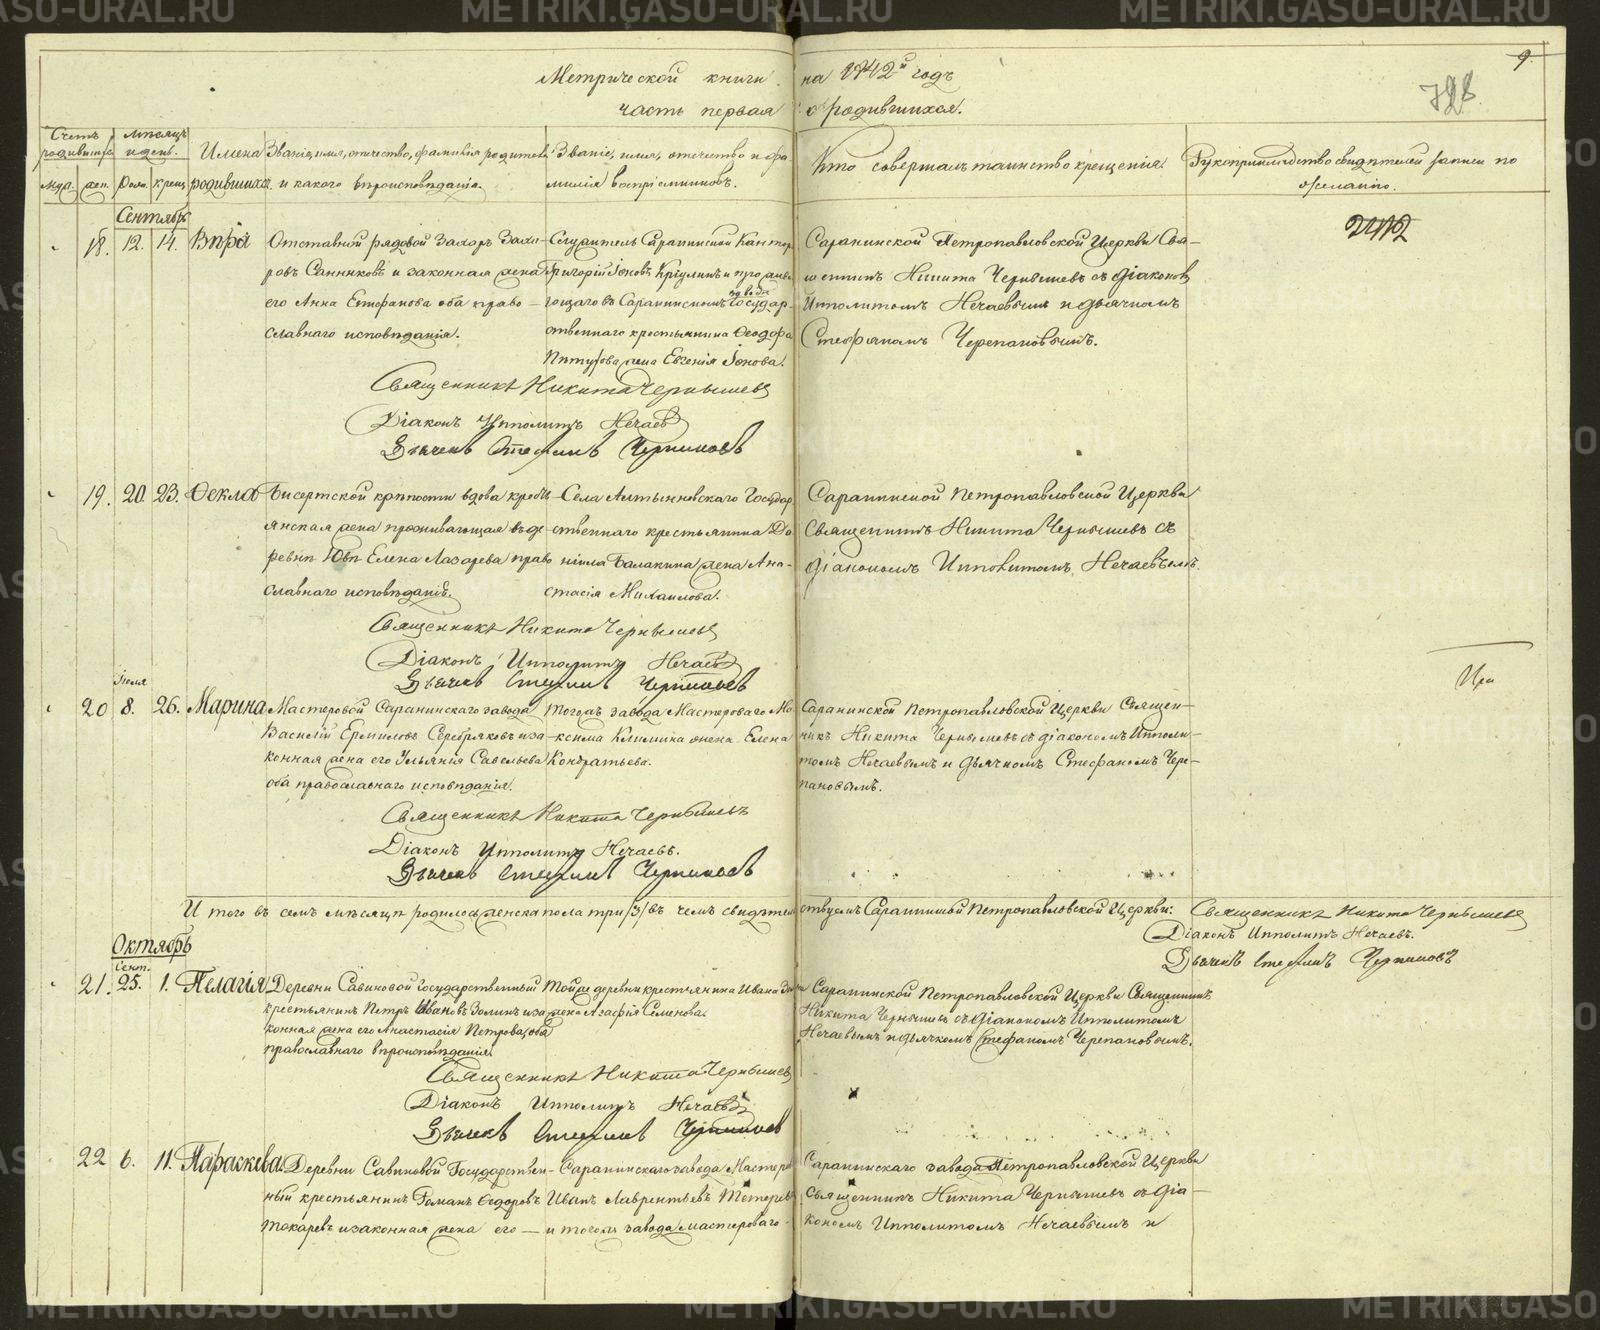 METRIKI.GASO-URAL.RU
Метрической книги на 1842й годъ
часть первая о родившихся.
9
Счетъ родившихся
Мѣсяцъ и день.
Имена родившихся.
Званіе, имя, отчество, фамилія родителей и какого вѣроисповѣданія.
Званіе, имя, отчество и фамилія воспріемниковъ.
Кто совершалъ таинство крещенія.
Рукоприкладство свидѣтелей записи по желанію.
муж. жен. рожд. крещ.
Сентябрь
18. 12. 14. Вѣра
Отставной рядовой Захаръ Заха-
ровъ Санниковъ и законная жена
его Анна Естефанова оба право-
славнаго исповѣданія.
Служитель Саранинской Конторы
Григорій Іоновъ и проживающаго въ Саранинскомъ заводѣ Государ-
ственнаго крестьянина Ѳеодора
жена Евгенія Іонова.
Саранинской Петропавловской Церкви Свя-
щенникъ Никита Чернышевъ съ діакономъ
Ипполитомъ Нечаевымъ и дьячкомъ
Стефаномъ Черепановымъ.
Священникъ Никита Чернышевъ
Діаконъ Ипполитъ Нечаевъ
Дьячекъ Стефанъ Черепановъ
19. 20. 23. Ѳекла
Бисертской крѣпости вдова кресть-
янская жена проживающая въ де-
ревнѣ Елена Лазарева право-
славнаго исповѣданія.
Села Алтынновскаго Государ-
ственнаго крестьянина
Балакина жена Ана-
стасія Михаилова.
Саранинской Петропавловской Церкви
Священникъ Никита Чернышевъ съ
діакономъ Ипполитомъ Нечаевымъ.
Священникъ Никита Чернышевъ
Діаконъ Ипполитъ Нечаевъ
Дьячекъ Стефанъ Черепановъ
20 8. 26. Марина
Мастеровой Саранинскаго завода
Василій Ермиловъ Серебряковъ и за-
конная жена его Ульянія Савельева
оба православнаго исповѣданія.
Тогожъ завода Мастероваго Ма-
ксима Климина жена Елена
Кондратьева.
Саранинской Петропавловской Церкви Священ-
никъ Никита Чернышевъ съ діакономъ Иппoли-
томъ Нечаевымъ и дьячкомъ Стефаномъ Чере-
пановымъ.
Священникъ Никита Чернышевъ
Діаконъ Ипполитъ Нечаевъ.
Дьячекъ Стефанъ Черепановъ
И того въ семъ мѣсяцѣ родилося женска пола три /3/ въ чемъ свидѣтельствуемъ Саранинской Петропавловской Церкви: Священникъ Никита Чернышевъ
Діаконъ Ипполитъ Нечаевъ.
Дьячекъ Стефанъ Черепановъ
Октябрь
Сент.
21. 25. 1. Пелагія
Деревни Савиновой Государственный
крестьянинъ Петръ Ивановъ Золинъ и за-
конная жена его Анастасія Петрова, оба
православнаго вѣроисповѣданія.
Тойже деревни крестьянина Ивана
жена Агафія Семенова.
Саранинской Петропавловской Церкви Священникъ
Никита Чернышевъ съ діакономъ Ипполитомъ
Нечаевымъ и дьячкомъ Стефаномъ Черепановымъ.
Священникъ Никита Чернышевъ
Діаконъ Ипполитъ Нечаевъ
Дьячекъ Стефанъ Черепановъ
22 6. 11. Параскева.
Деревни Савиновой Государствен-
ный крестьянинъ Романъ Ѳедоровъ
Токаревъ и законная жена его —
Саранинскаго завода Мастеро-
Иванъ Лаврентьевъ
и тогожъ завода мастероваго
Саранинскаго завода Петропавловской Церкви
Священникъ Никита Чернышевъ съ діа-
кономъ Ипполитомъ Нечаевымъ и